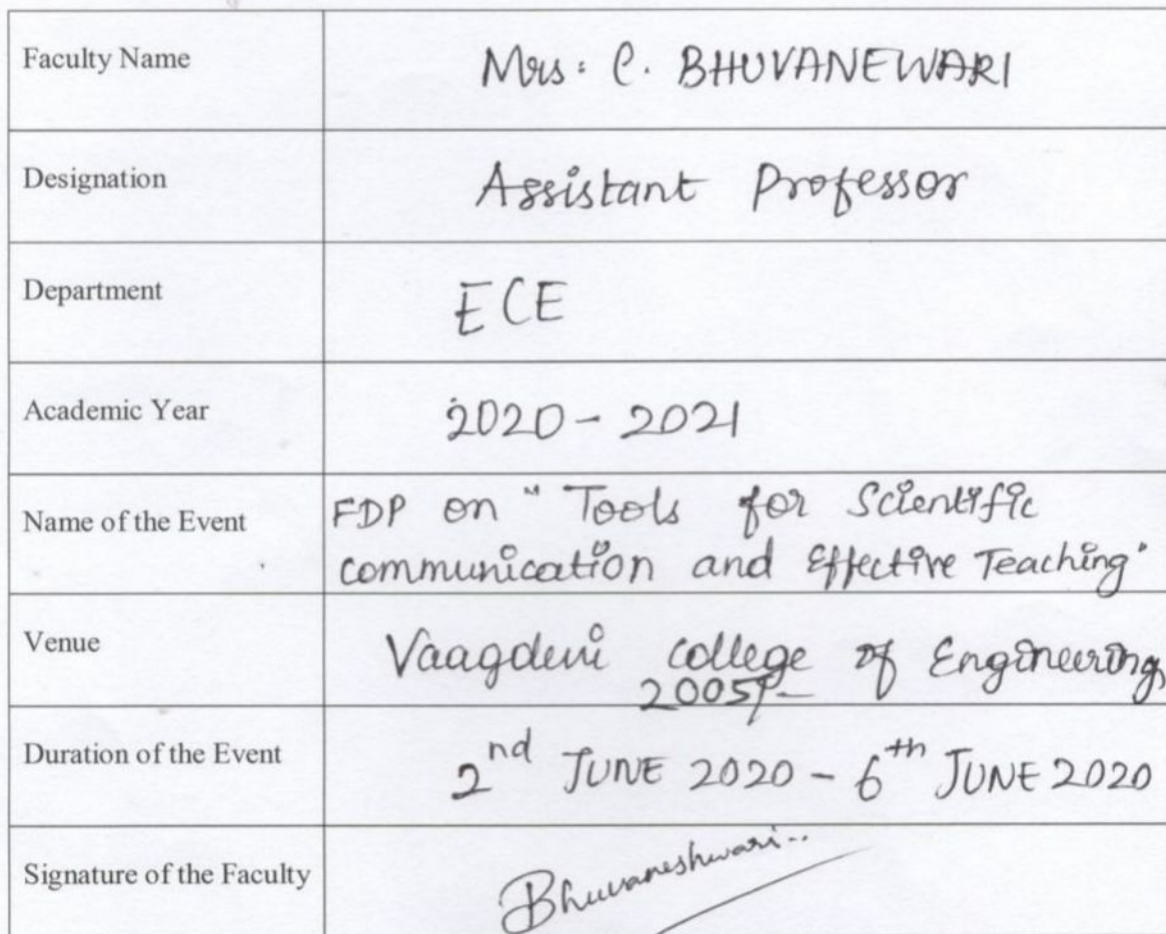 Faculty Name Mrs: C. BHUVANEWARI
Designation Assistant Professor
Department ECE
Academic Year 2020 - 2021
Name of the Event FDP on "Tools for Scientific
communication and Effective Teaching"
Venue Vaagdevi college of Engineering,
2005/-
Duration of the Event 2nd JUNE 2020 - 6th JUNE 2020
Signature of the Faculty Bhuvaneshwari..